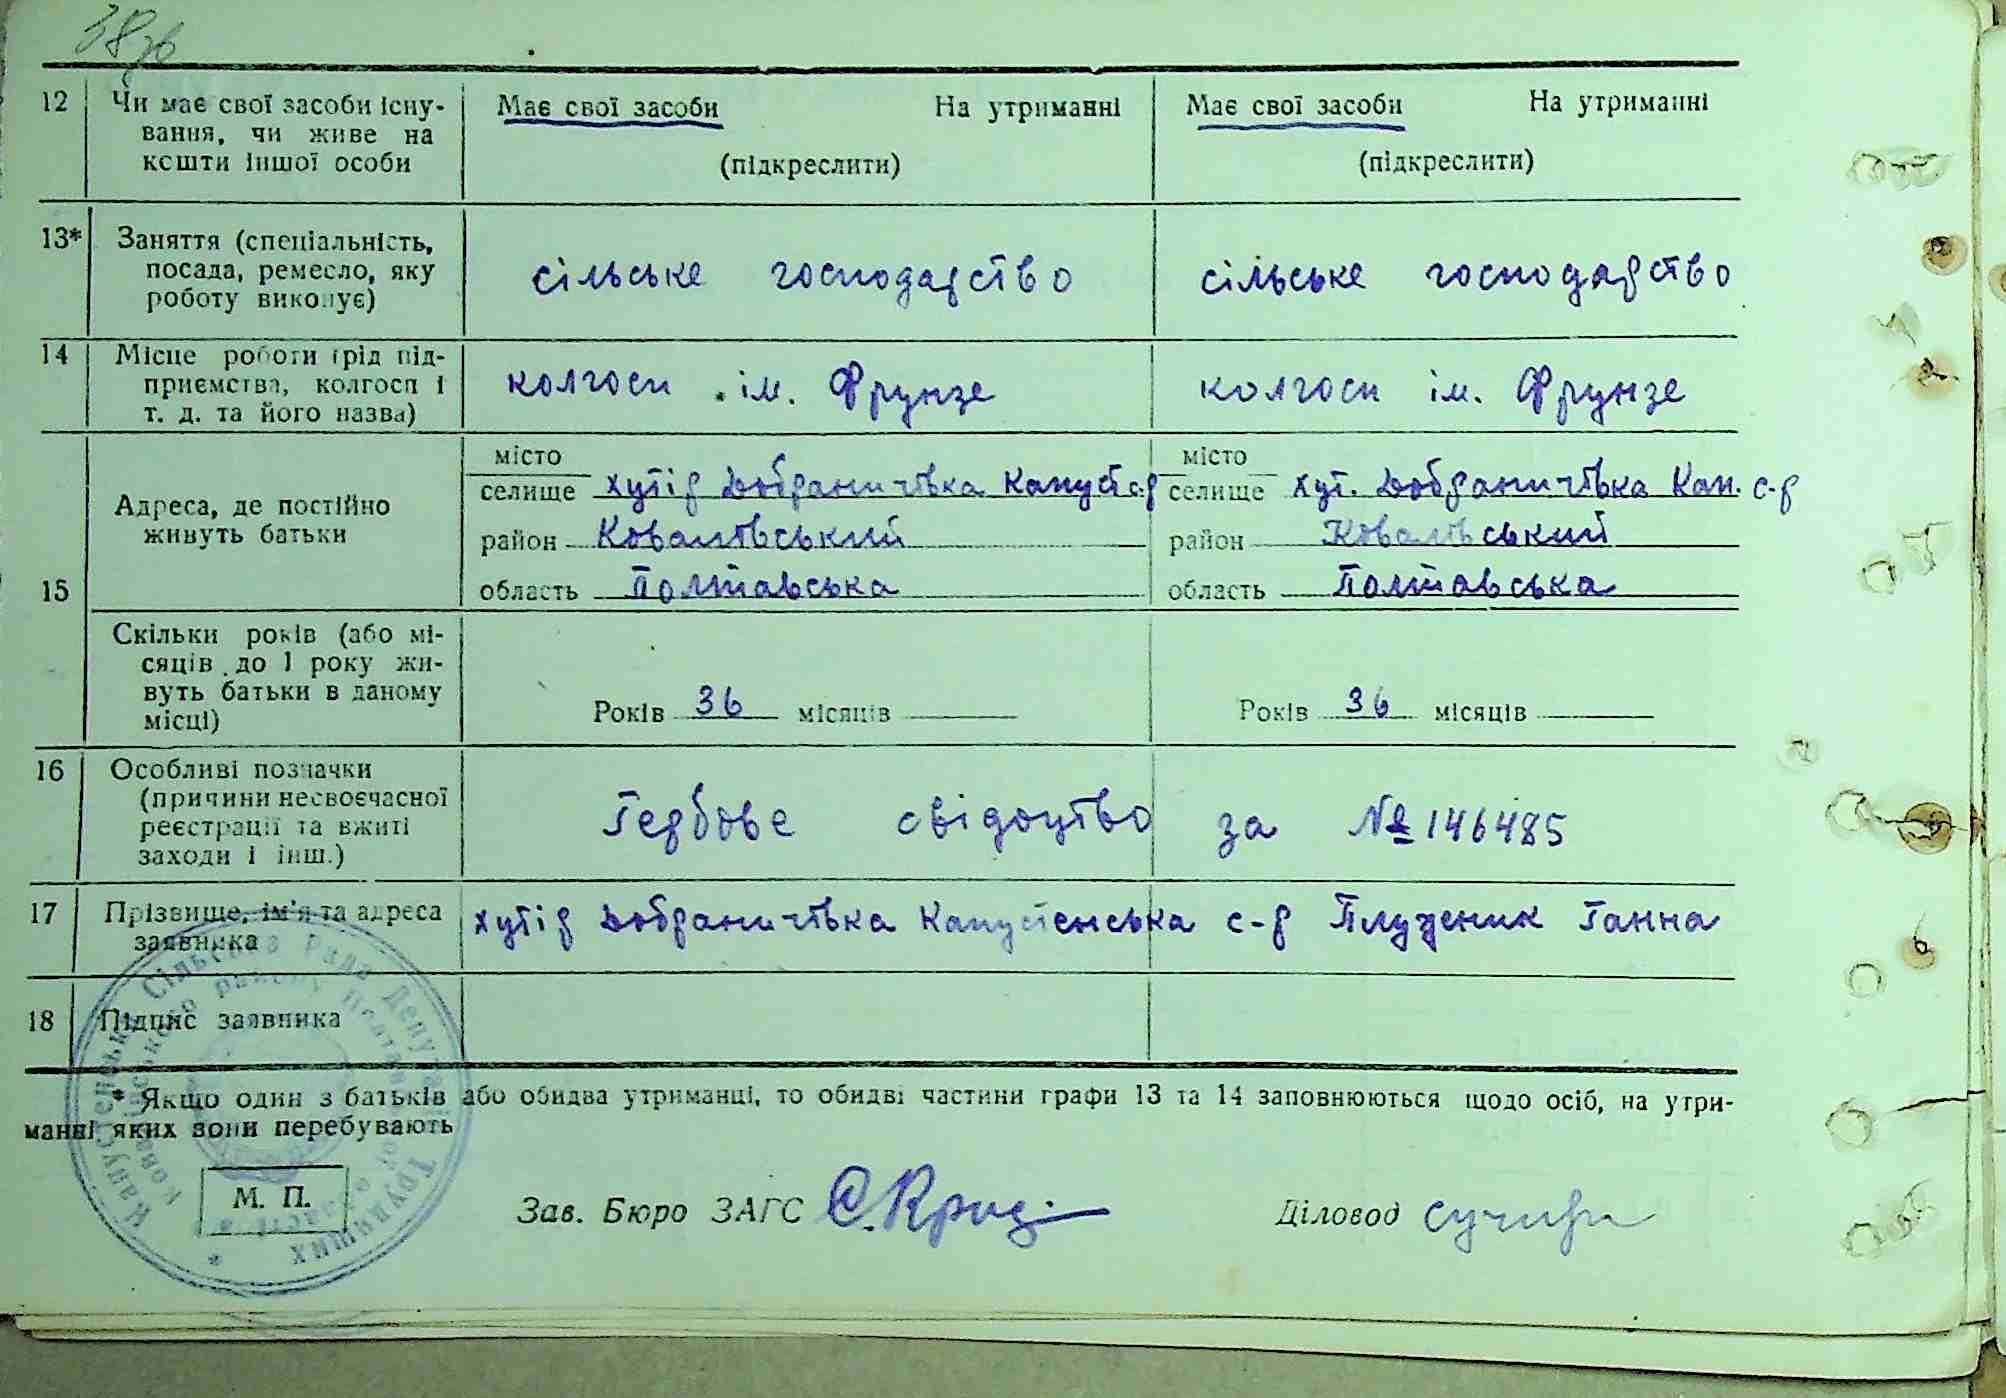 38зв
12 Чи має свої засоби існу- Має свої засоби На утриманні Має свої засоби На утриманні
вання, чи живе на
кошти іншої особи (підкреслити) (підкреслити)
13* Заняття (спеціальність,
посада, ремесло, яку сільське господарство сільське господарство
роботу виконує)
14 Місце роботи (рід під-
приємства, колгосп і колгосп ім. Фрунзе колгосп ім. Фрунзе
т. д. та його назва)
місто місто
Адреса, де постійно селище хутір Добраничівка Капуст с-р селище хут. Добраничівка Кап. с-р
живуть батьки район Ковалівський район Ковалівський
15 область Полтавська область Полтавська
Скільки років (або мі-
сяців до 1 року жи-
вуть батьки в даному Років 36 місяців Років 36 місяців
місці)
16 Особливі позначки
(причини несвоєчасної Гербове свідоцтво за № 146485
реєстрації та вжиті
заходи і інш.)
17 Прізвище, ім'я та адреса хутір Добраничівка Капустенська с-р Плуженик Ганна
заявника
18 Підпис заявника
* Якщо один з батьків або обидва утриманці, то обидві частини графи 13 та 14 заповнюються щодо осіб, на утри-
манні яких вони перебувають
М. П. Зав. Бюро ЗАГС Діловод
Капустенська Сільська Рада Депутатів Трудящих
Ковалівського району Полтавської області